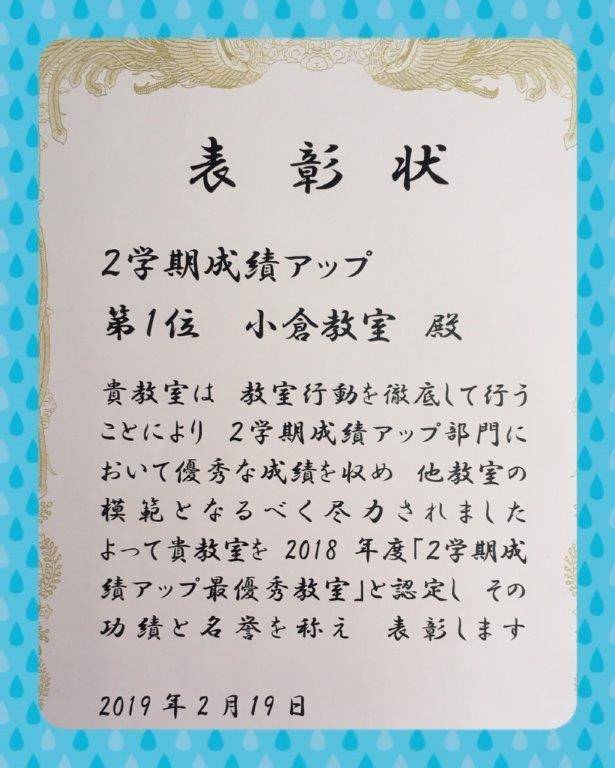 表彰状
2学期成績アップ
第1位 小倉教室 殿
貴教室は 教室行動を徹底して行う
ことにより 2学期成績アップ部門に
おいて優秀な成績を収め 他教室の
模範となるべく尽力されました
よって貴教室を 2018 年度「2学期成
績アップ最優秀教室」と認定し その
功績と名誉を称え 表彰します
2019年2月19日